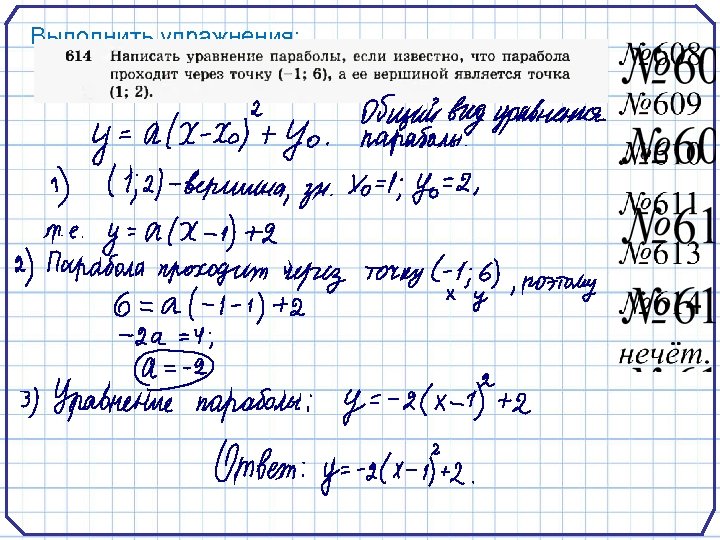 Выполнить упражнения:
614 Написать уравнение параболы, если известно, что парабола
проходит через точку (−1; 6), а ее вершиной является точка
(1; 2).
y = a(x-x₀)² + y₀. Общий вид уравнения
параболы.
1) (1;2) – вершина, зн. x₀=1; y₀=2,
т.е. y = a(x-1)+2
2) Парабола проходит через точку (-1; 6), поэтому
x y
6 = a(-1-1)+2
-2a = 4;
a = -2
3) Уравнение параболы: y = -2(x-1)²+2
Ответ: y = -2(x-1)²+2.
№608
№609
№610
№611
№613
№614
нечёт.